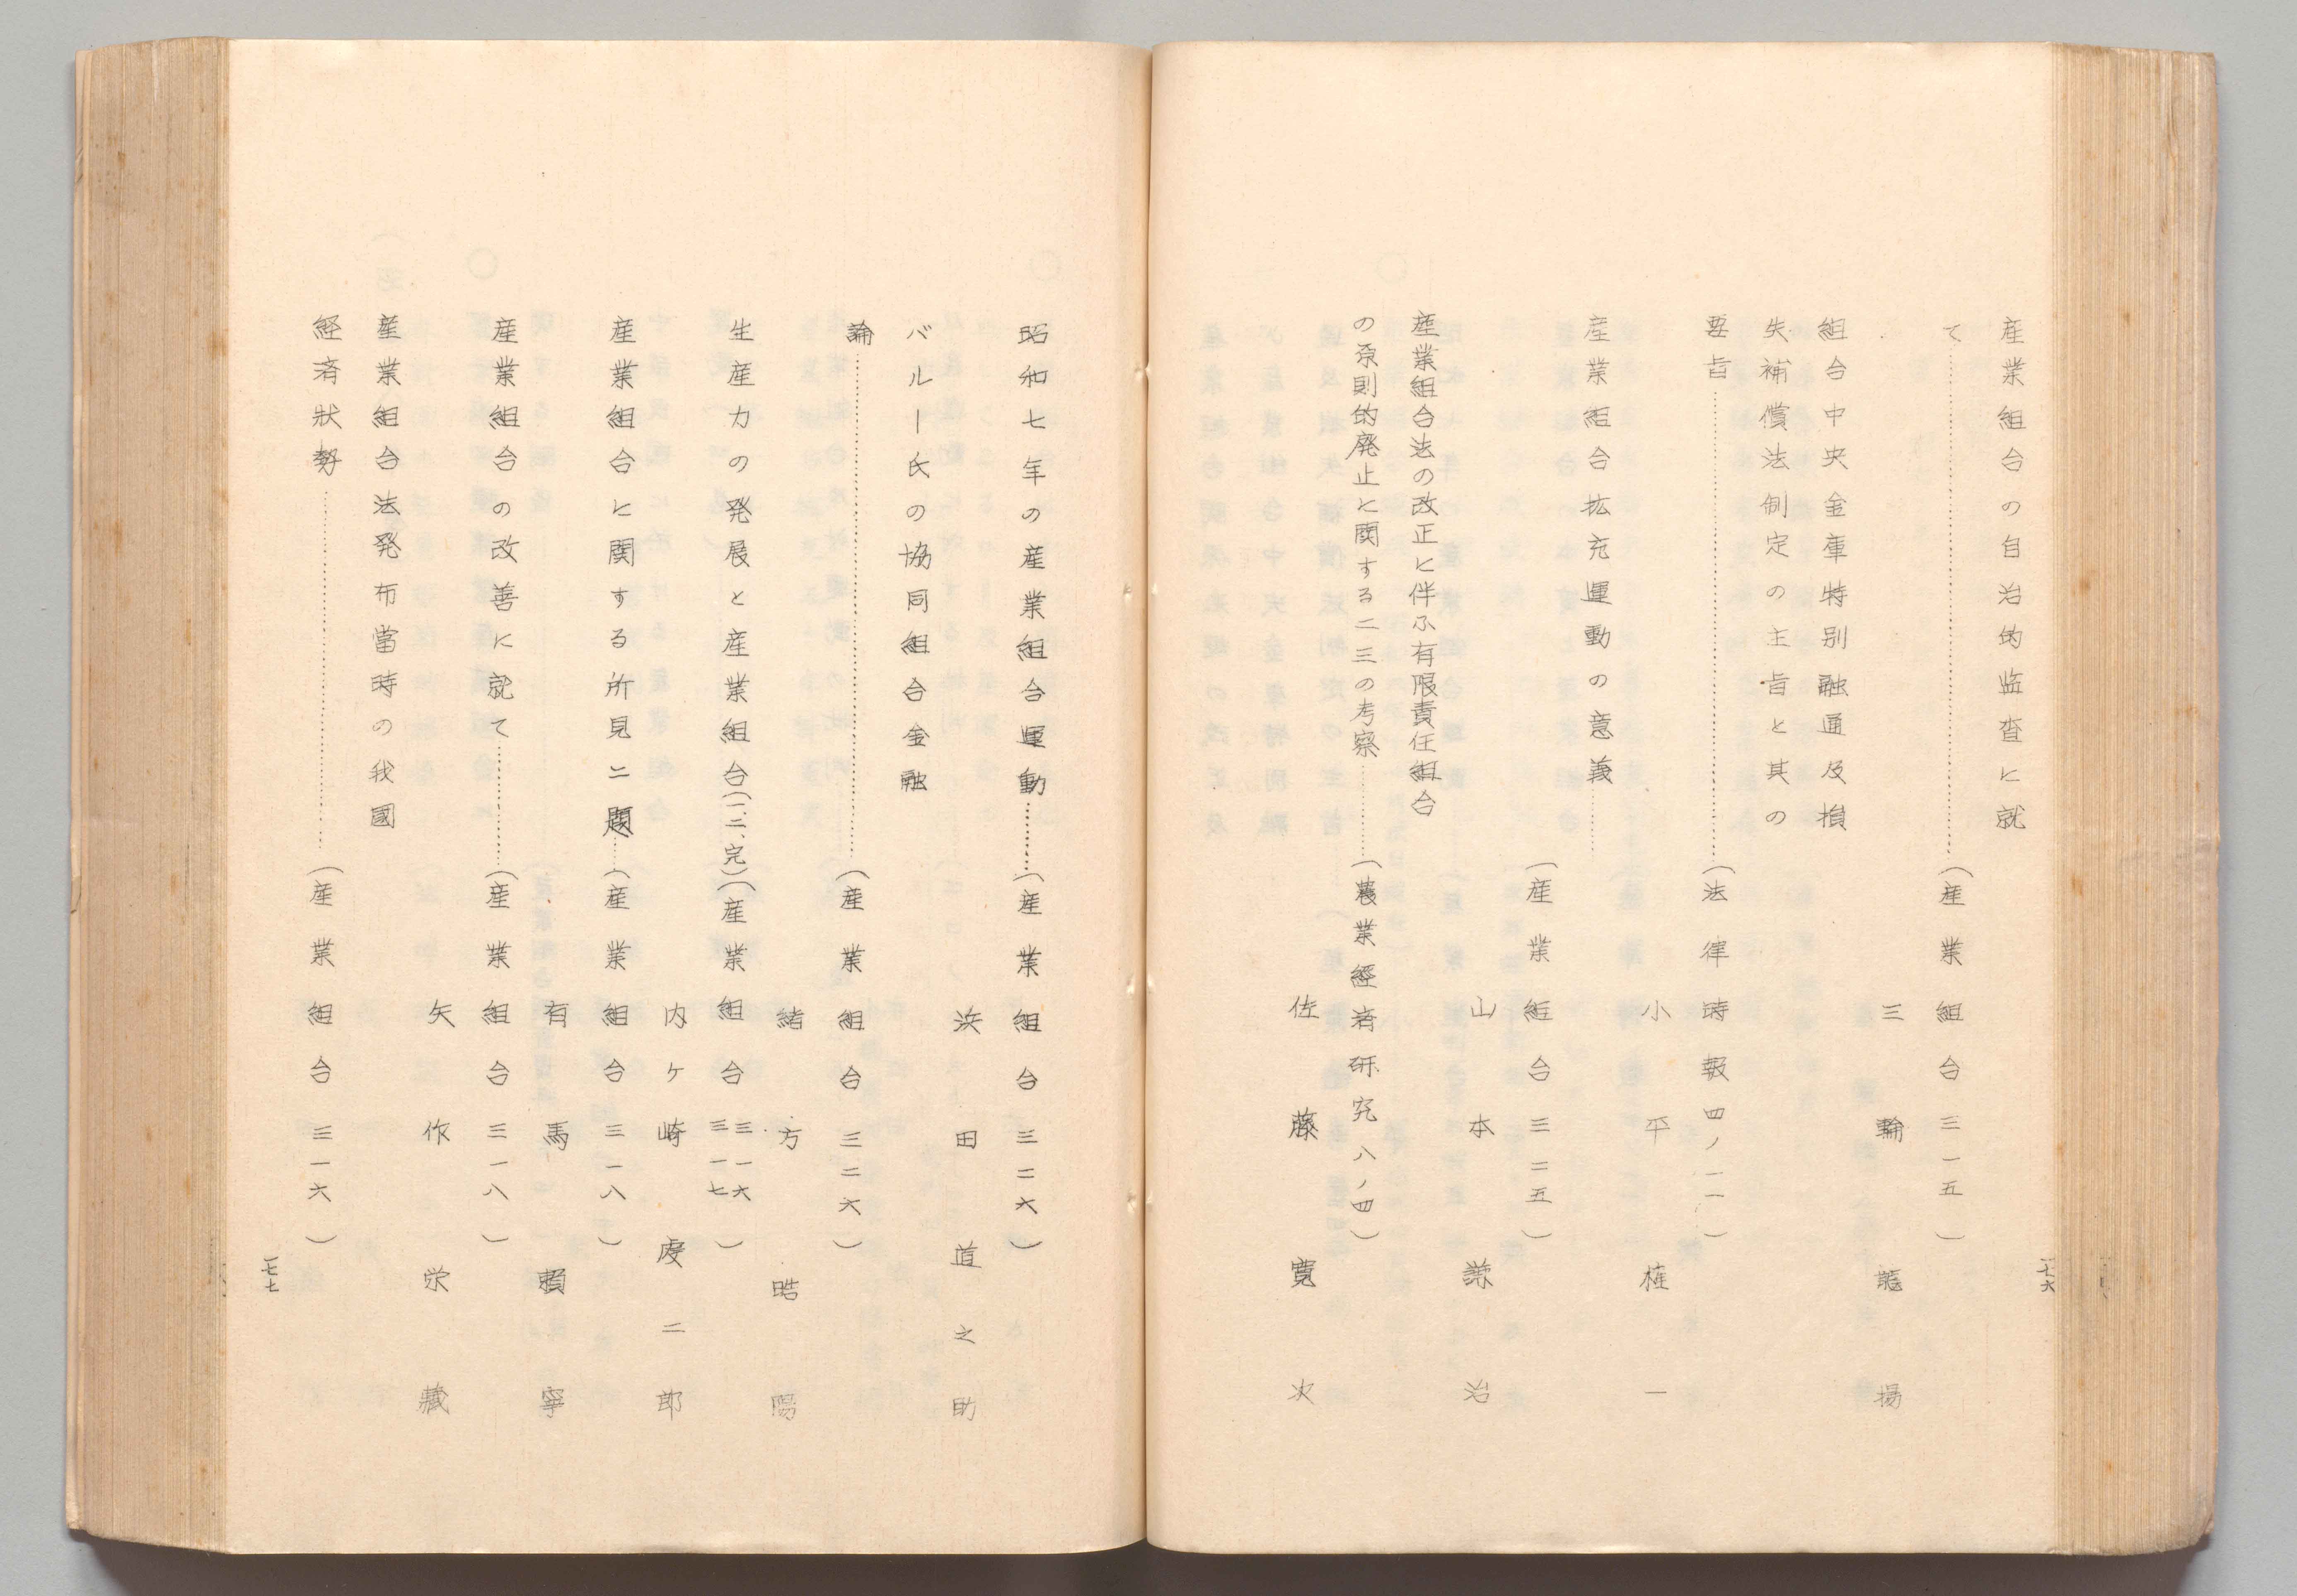 産業組合の自治的監査に就
て……(産業組合三一五)
三輪龍揚
組合中央金庫特別融通及損
失補償法制定の主旨と其の
要旨……(法律時報四ノ一一)
小平権一
産業組合拡充運動の意義……
(産業組合三二五)
山本諒治
産業組合法の改正に伴ふ有限責任組合
の原則的廃止に関する二三の考察……(農業経済研究八ノ四)
佐藤寛次
一七六
昭和七年の産業組合運動……(産業組合三二六)
浜田道之助
バルー氏の協同組合金融
論……(産業組合三二六)
緒方晧陽
生産力の発展と産業組合(一、二、完)(産業組合三一六 三一七)
内ヶ崎虔二郎
産業組合に関する所見二題……(産業組合三一八)
有馬頼寧
産業組合の改善に就て……(産業組合三一八)
矢作栄蔵
産業組合法発布當時の我國
経済状勢……(産業組合三一六)
一七七